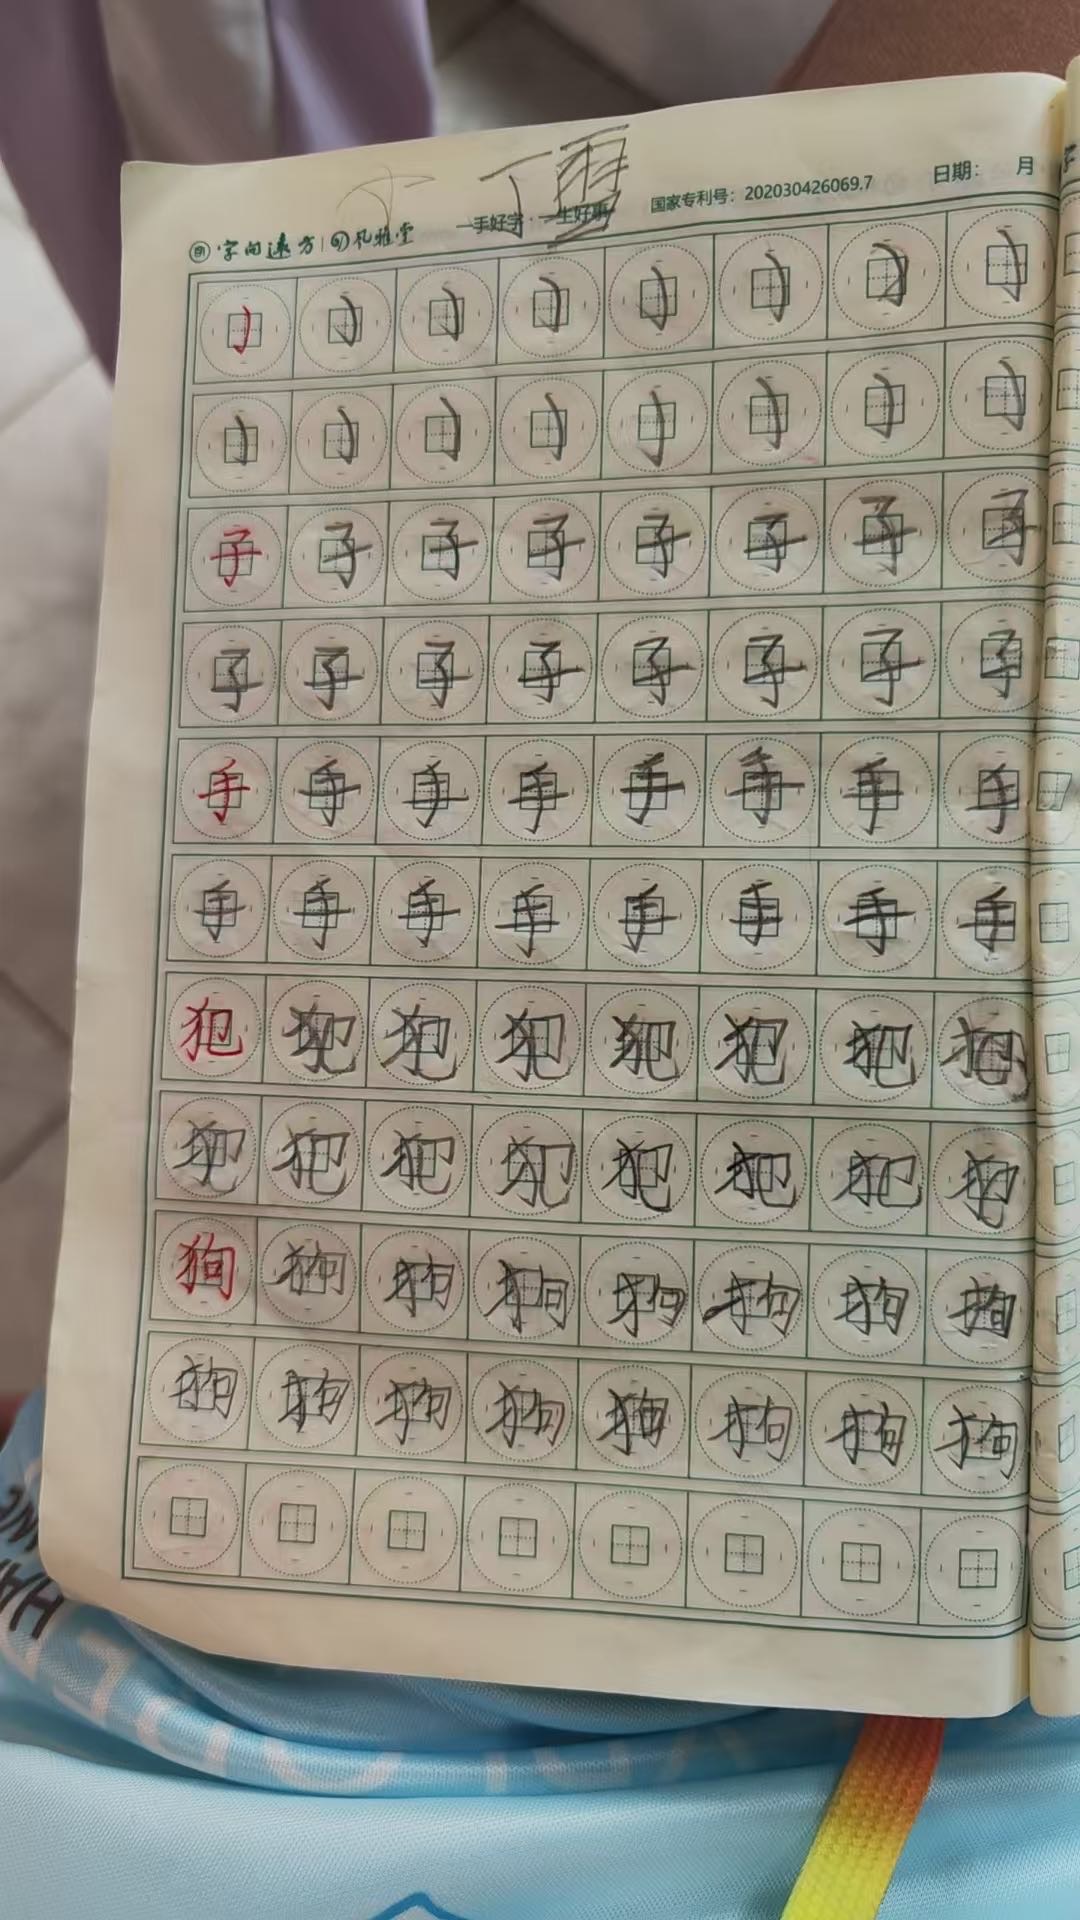 丁雪
字向遠方 礼雅堂 一手好字·一生好事 国家专利号：202030426069.7 日期： 月
子 子 子 子 子 子 子 子
子 子 子 子 子 子 子 子
手 手 手 手 手 手 手 手
手 手 手 手 手 手 手 手
犯 犯 犯 犯 犯 犯 犯 犯
犯 犯 犯 犯 犯 犯 犯 犯
狗 狗 狗 狗 狗 狗 狗 狗
狗 狗 狗 狗 狗 狗 狗 狗